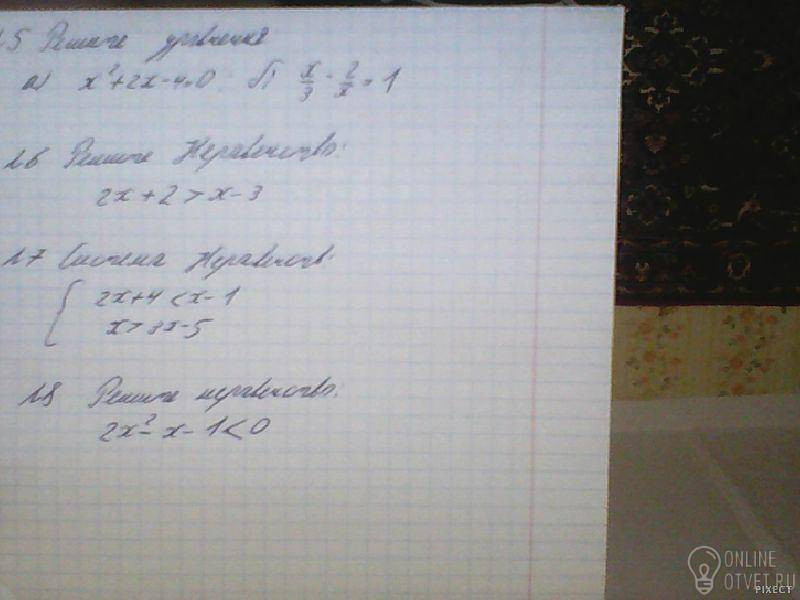 15 Решите уравнения
а) x²+2x-4=0 б) x/3 - 2/x = 1
16 Решите Неравенство:
2x+2>x-3
17 Система Неравенств
{ 2x+4<x-1
x>3x-5
18 Решите неравенство:
2x²-x-1<0
ONLINE
OTVET.RU
PIXECT